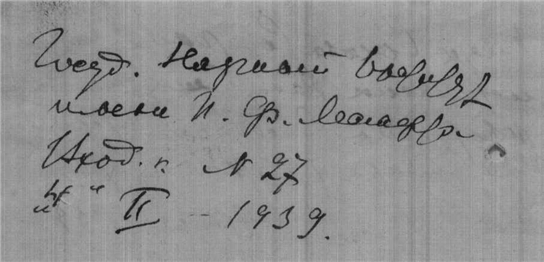 Госуд. Научный
имени П. Ф. Лесгафта
Исход. п. N 27
"4" II - 1939.